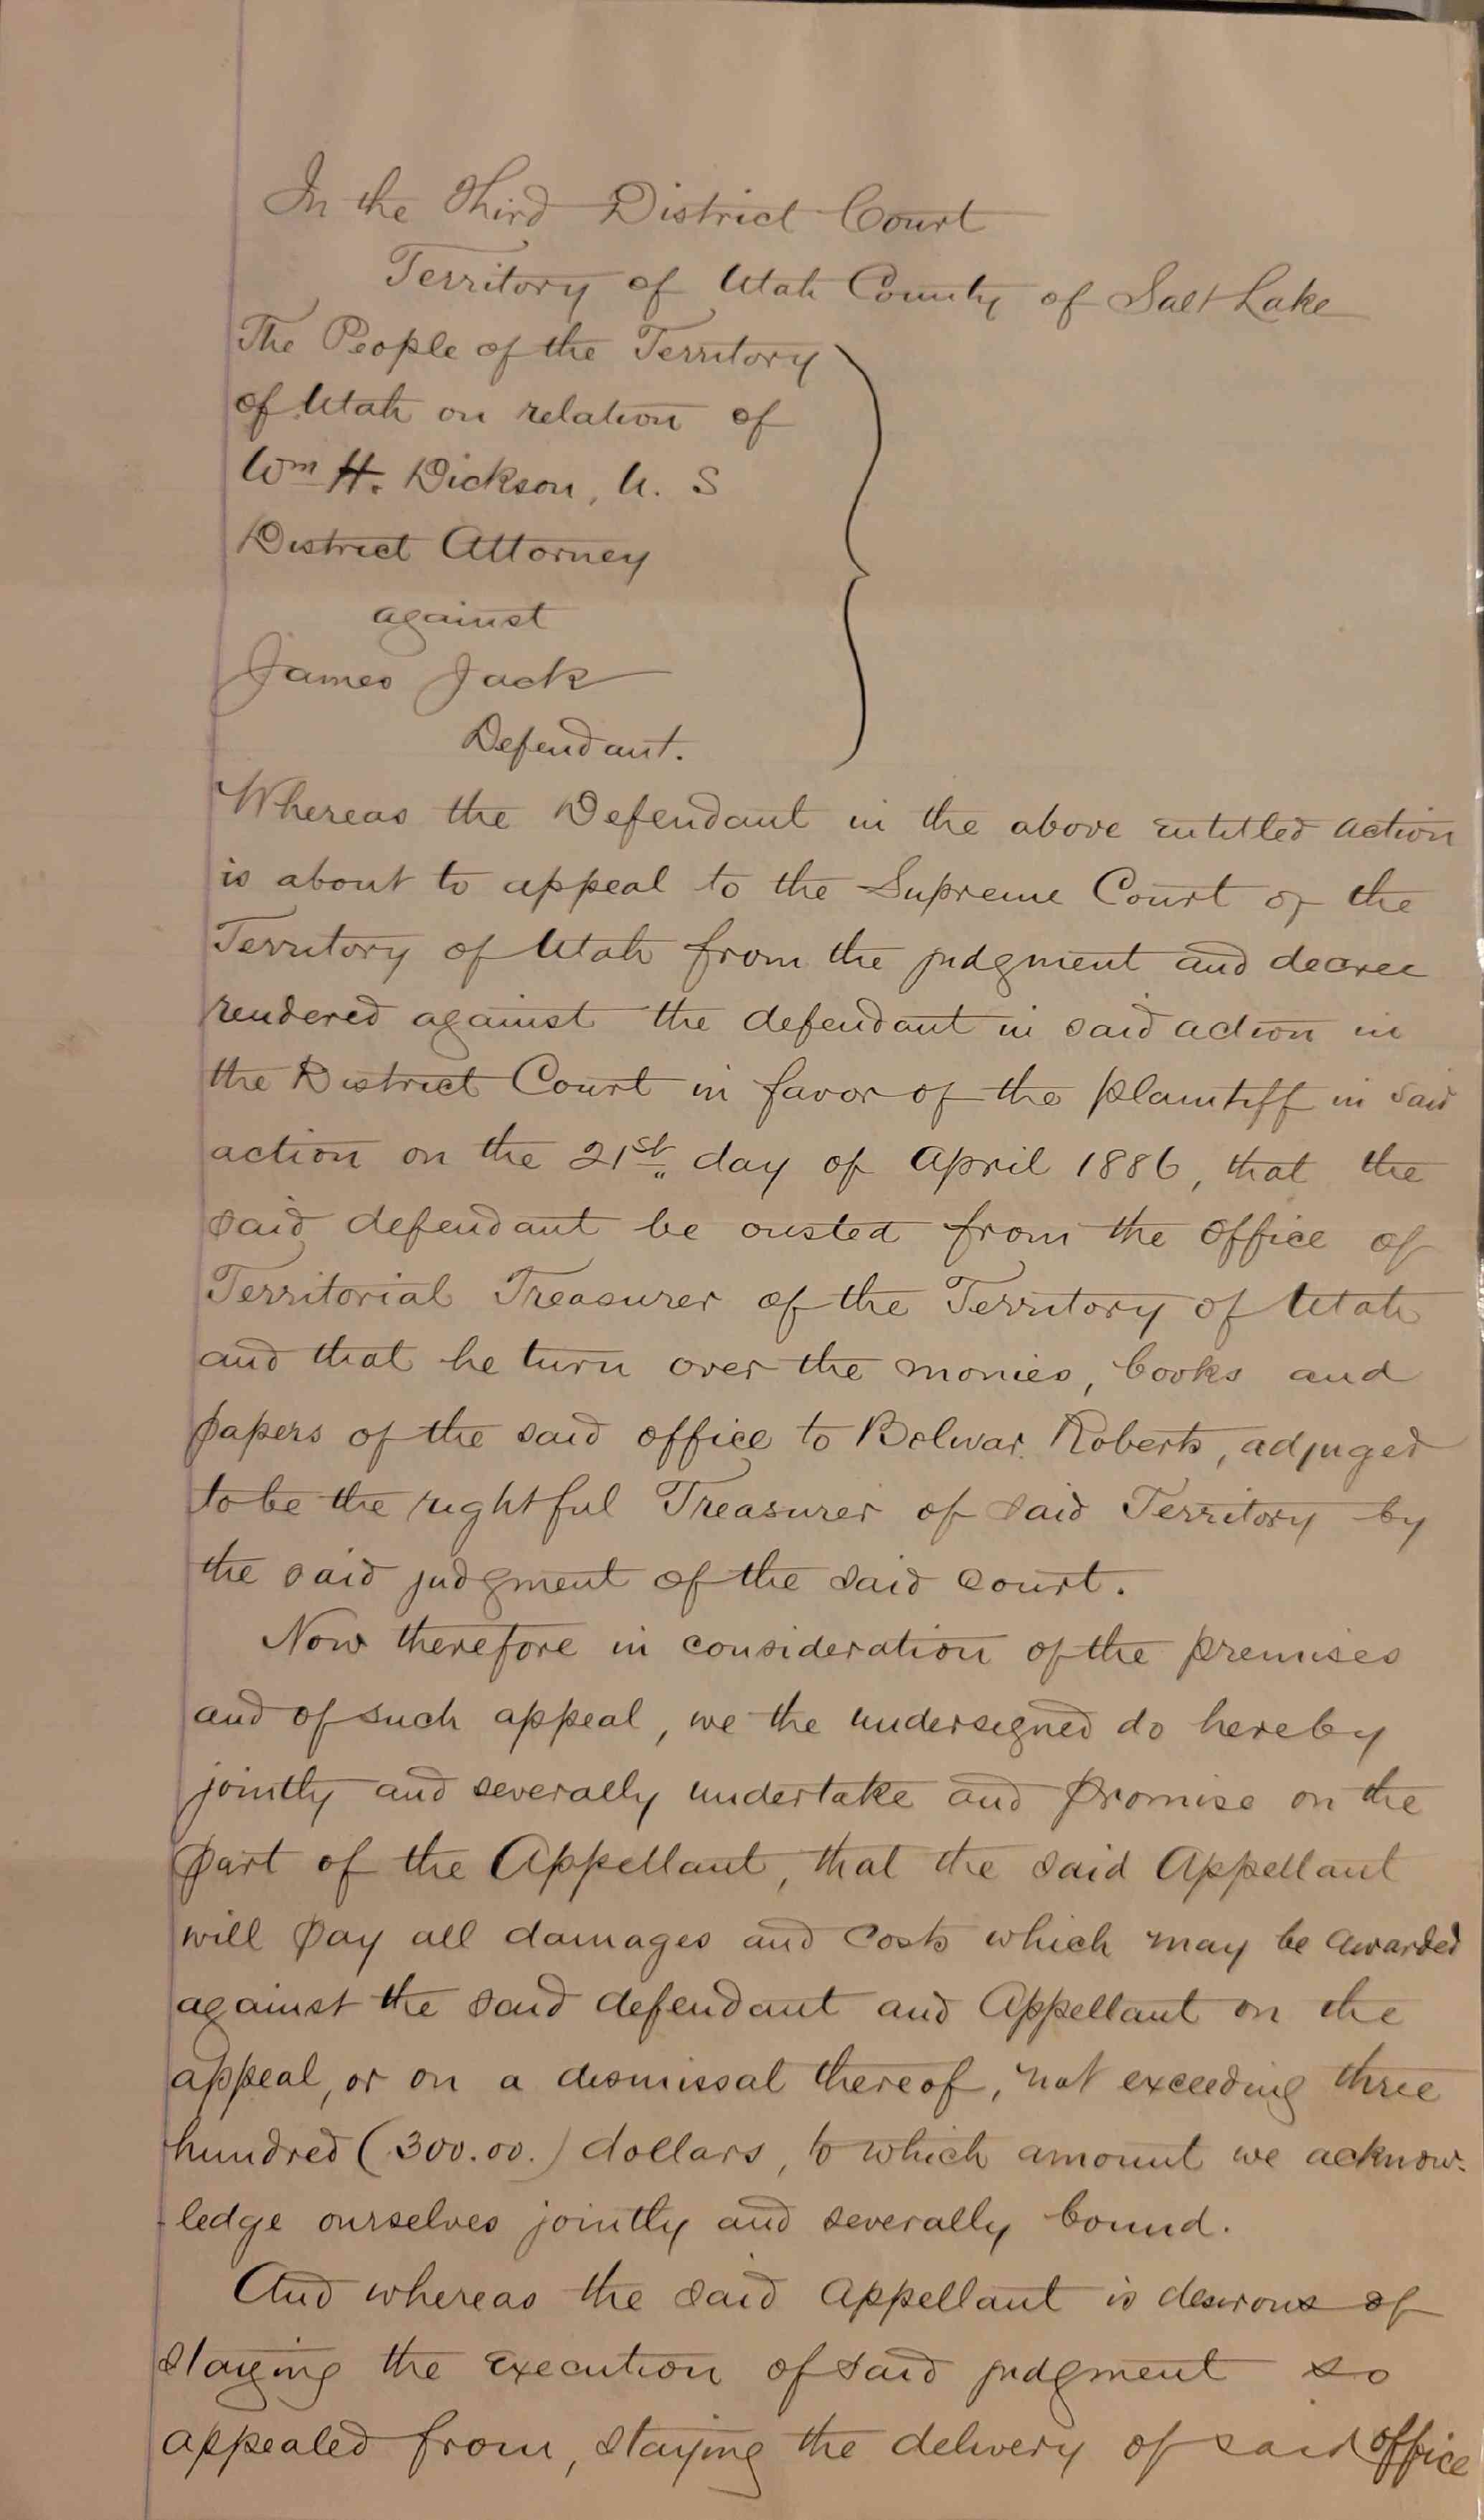 In the Third District Court
Territory of Utah County of Salt Lake
The People of the Territory
of Utah on relation of
Wm H. Dickson, U. S
District Attorney
against
James Jack
Defendant.
Whereas the Defendant in the above entitled action
is about to appeal to the Supreme Court of the
Territory of Utah from the judgment and decree
rendered against the defendant in said action in
the District Court in favor of the plaintiff in said
action on the 21st day of April 1886, that the
said defendant be ousted from the office of
Territorial Treasurer of the Territory of Utah
and that he turn over the monies, books and
papers of the said office to Bolivar Roberts, adjuged
to be the rightful Treasurer of said Territory by
the said judgment of the said Court.
Now therefore in consideration of the premises
and of such appeal, we the undersigned do hereby
jointly and severally undertake and promise on the
part of the Appellant, that the said Appellant
will pay all damages and costs which may be awarded
against the said defendant and Appellant on the
appeal, or on a dismissal thereof, not exceeding three
hundred (300.00.) dollars, to which amount we acknow-
ledge ourselves jointly and severally bound.
And whereas the said Appellant is desirous of
staying the execution of said judgment so
appealed from, staying the delivery of said office